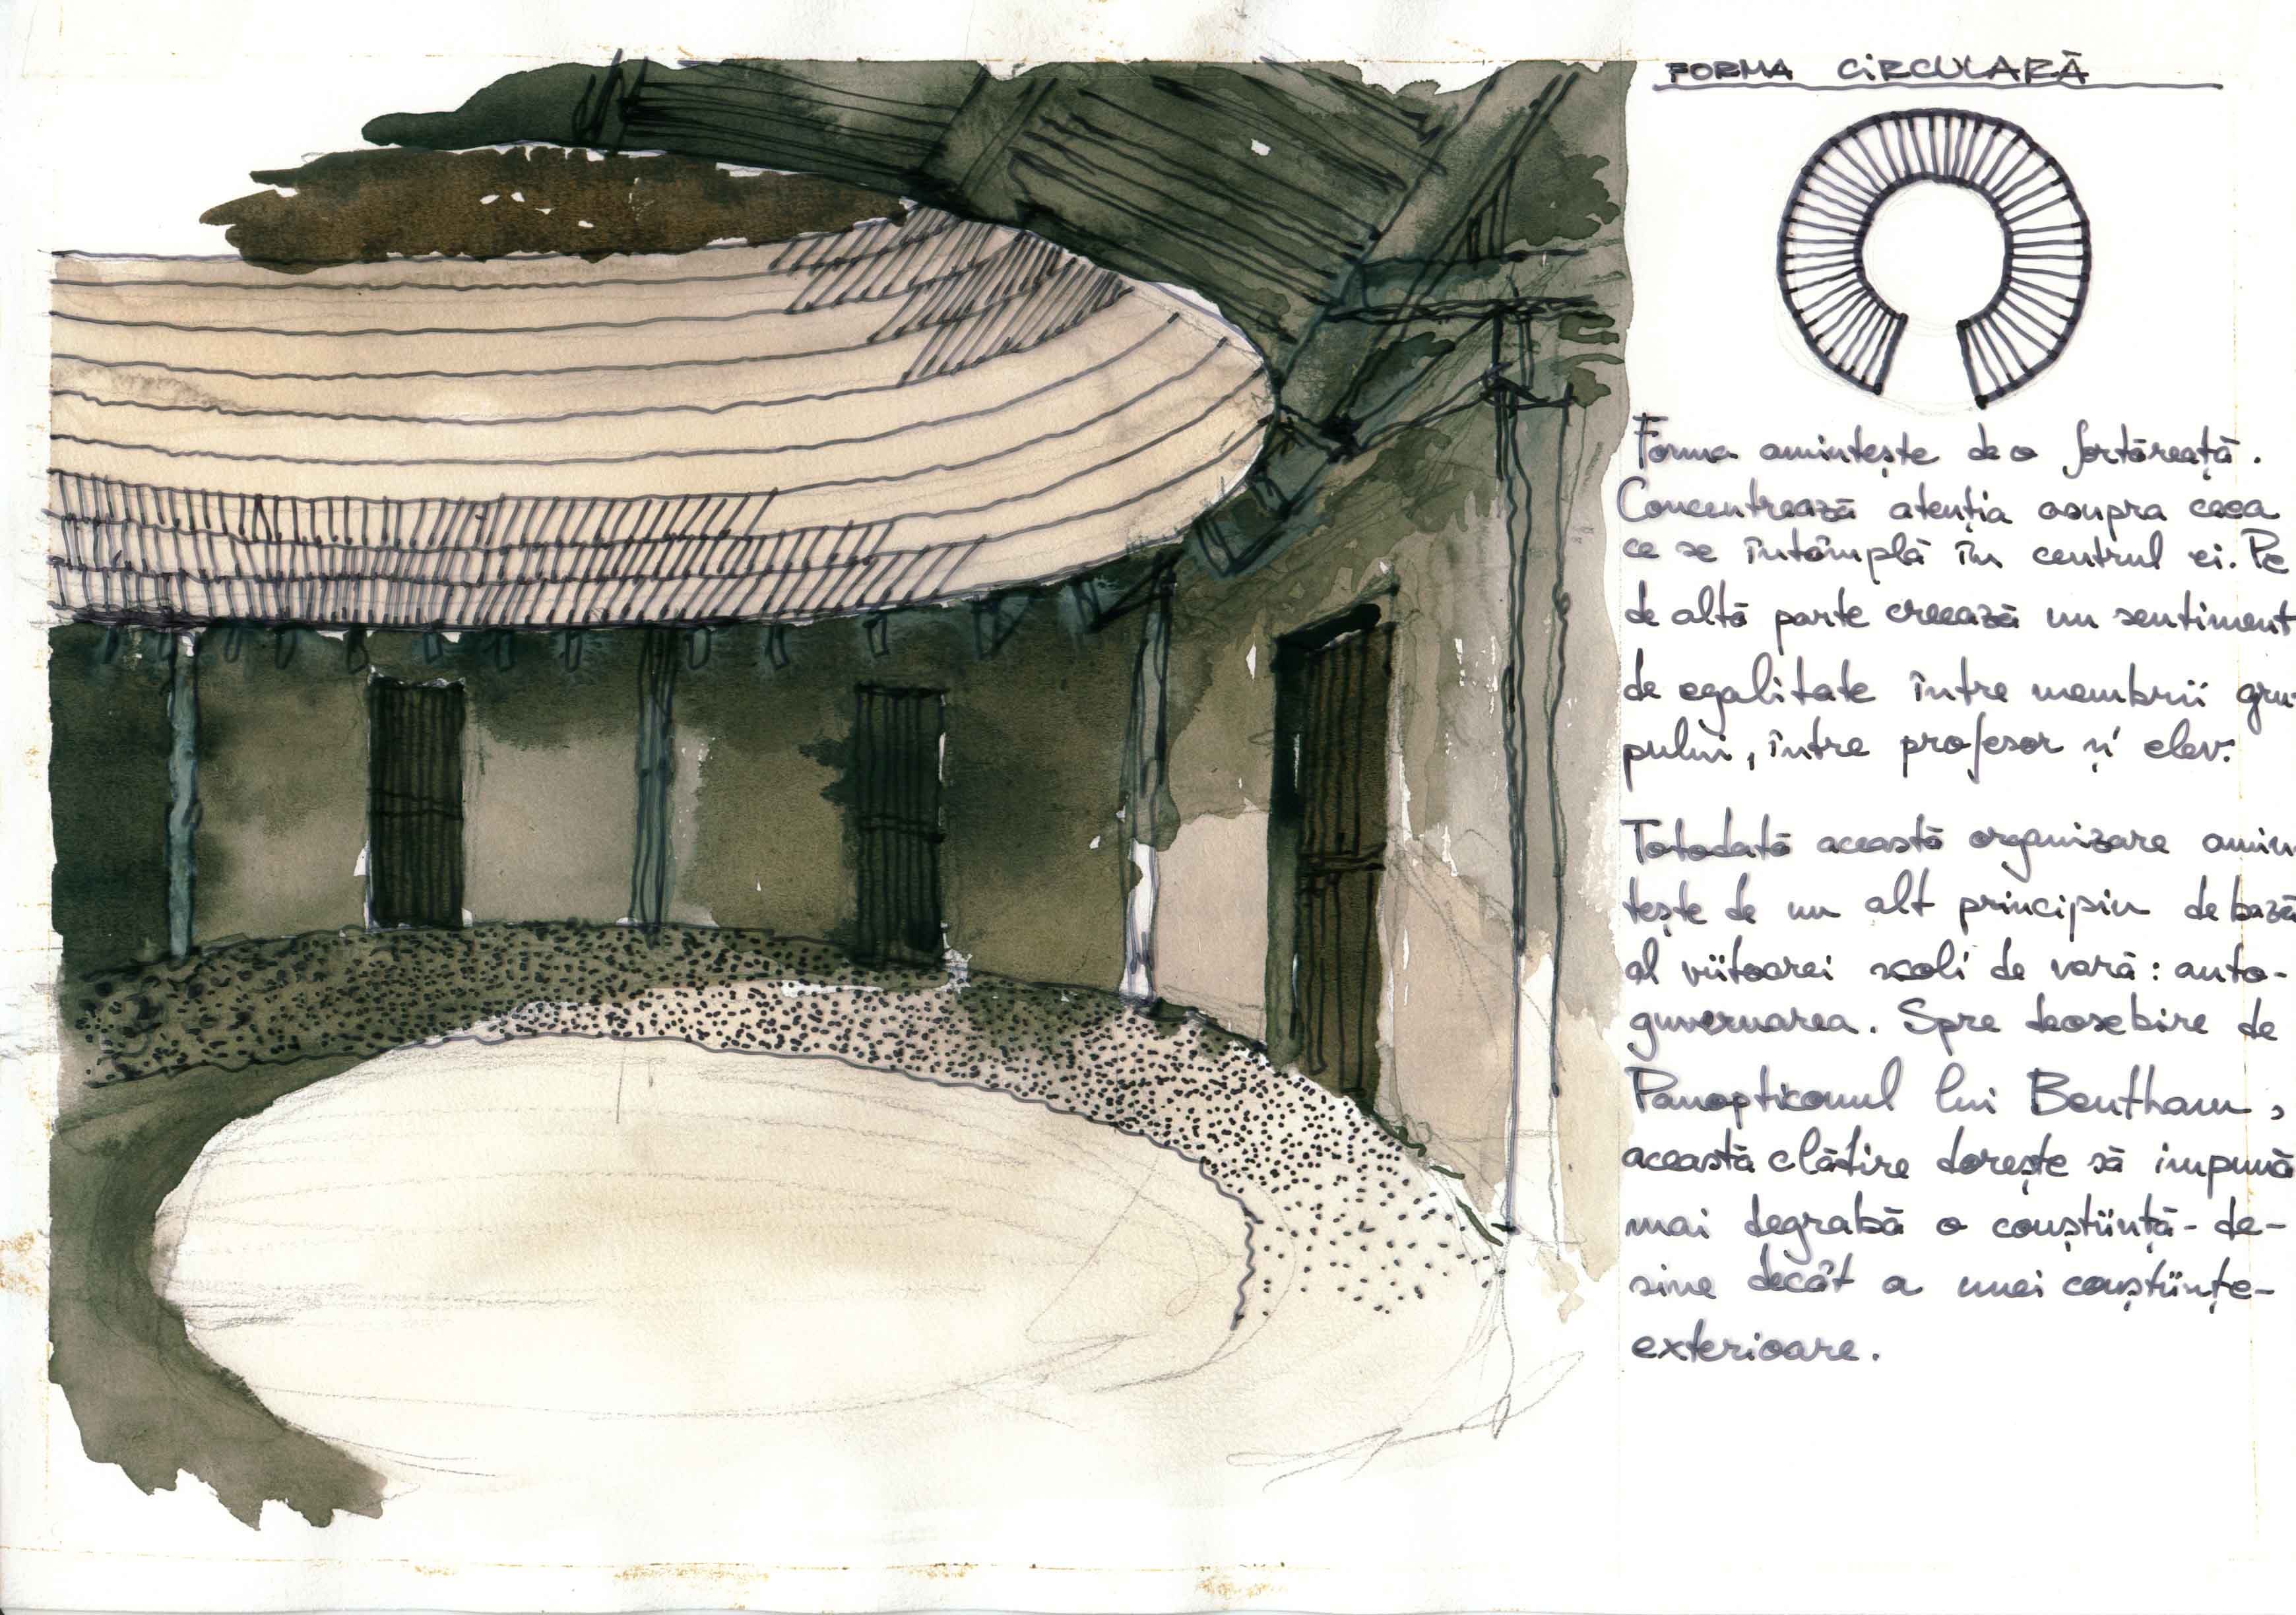 FORMA CIRCULARĂ
Forma amintește de o fortăreață.
Concentrează atenția asupra ceea
ce se întâmplă în centrul ei. Pe
de altă parte creează un sentiment
de egalitate între membrii gru-
pului, între profesor și elev.
Totodată această organizare amin
tește de un alt principiu de bază
al viitoarei școli de vară: auto-
guvernarea. Spre deosebire de
Panopticonul lui Bentham,
această clădire dorește să impună
mai degrabă o conștiință-de-
sine decât a unei conștiințe-
exterioare.